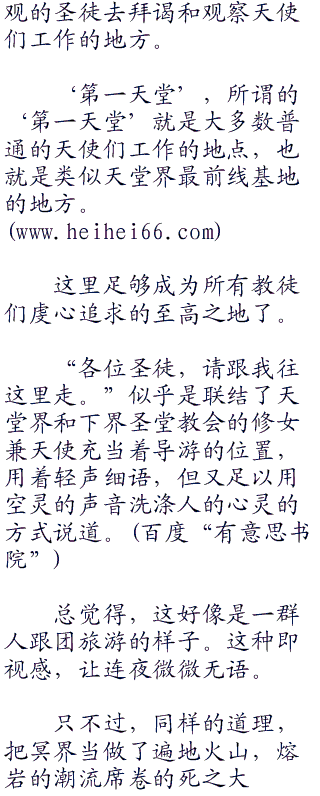 观的圣徒去拜谒和观察天使
们工作的地方。
‘第一天堂’，所谓的
‘第一天堂’就是大多数普
通的天使们工作的地点，也
就是类似天堂界最前线基地
的地方。
(www.heihei66.com)
这里足够成为所有教徒
们虔心追求的至高之地了。
“各位圣徒，请跟我往
这里走。”似乎是联结了天
堂界和下界圣堂教会的修女
兼天使充当着导游的位置，
用着轻声细语，但又足以用
空灵的声音洗涤人的心灵的
方式说道。(百度“有意思书
院”)
总觉得，这好像是一群
人跟团旅游的样子。这种即
视感，让连夜微微无语。
只不过，同样的道理，
把冥界当做了遍地火山，熔
岩的潮流席卷的死之大